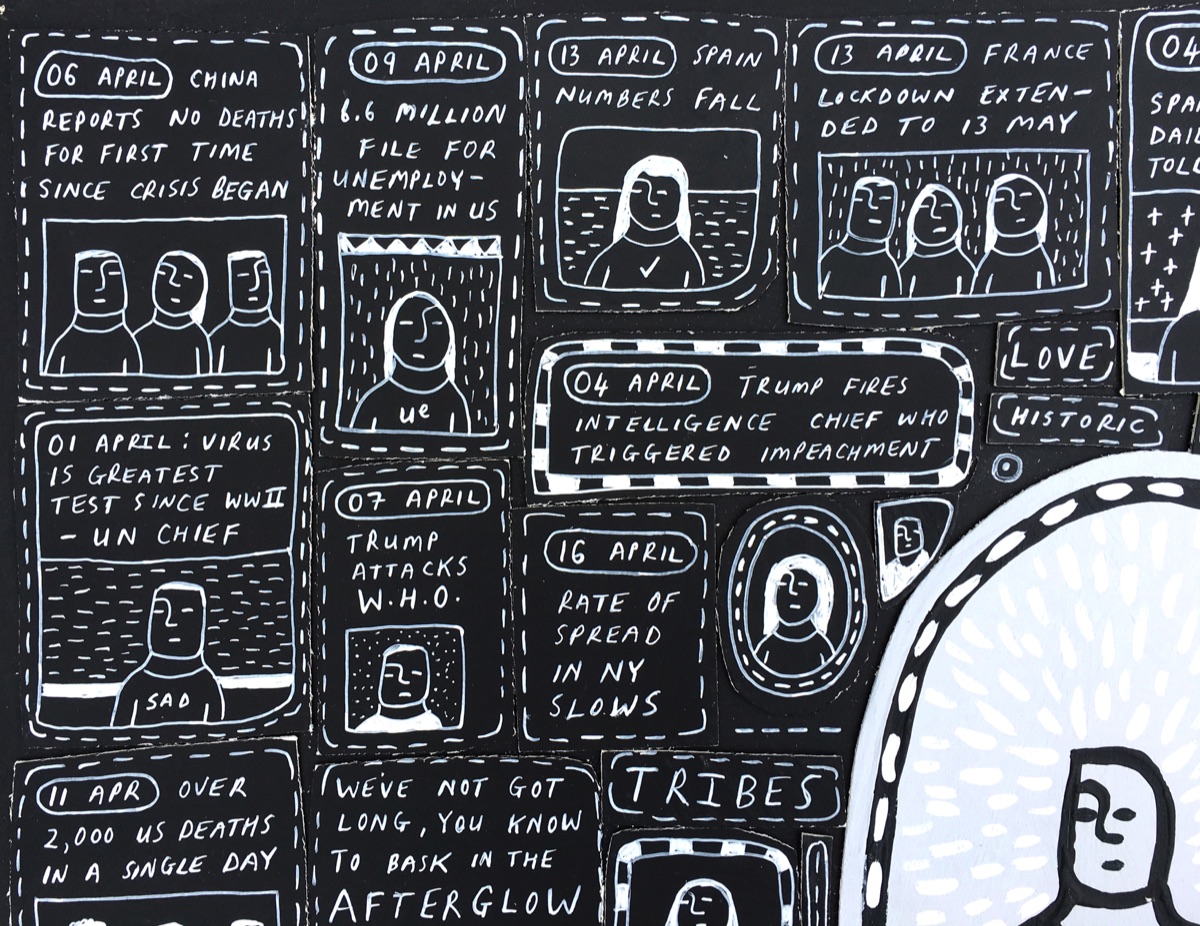 06 APRIL CHINA
REPORTS NO DEATHS
FOR FIRST TIME
SINCE CRISIS BEGAN
09 APRIL
6.6 MILLION
FILE FOR
UNEMPLOY-
MENT IN US
ue
13 APRIL SPAIN
NUMBERS FALL
13 APRIL FRANCE
LOCKDOWN EXTEN-
DED TO 13 MAY
04
04 APRIL TRUMP FIRES
INTELLIGENCE CHIEF WHO
TRIGGERED IMPEACHMENT
LOVE
HISTORIC
01 APRIL: VIRUS
IS GREATEST
TEST SINCE WWII
- UN CHIEF
SAD
07 APRIL
TRUMP
ATTACKS
W.H.O.
16 APRIL
RATE OF
SPREAD
IN NY
SLOWS
11 APR OVER
2,000 US DEATHS
IN A SINGLE DAY
WE'VE NOT GOT
LONG, YOU KNOW
TO BASK IN THE
AFTERGLOW
TRIBES